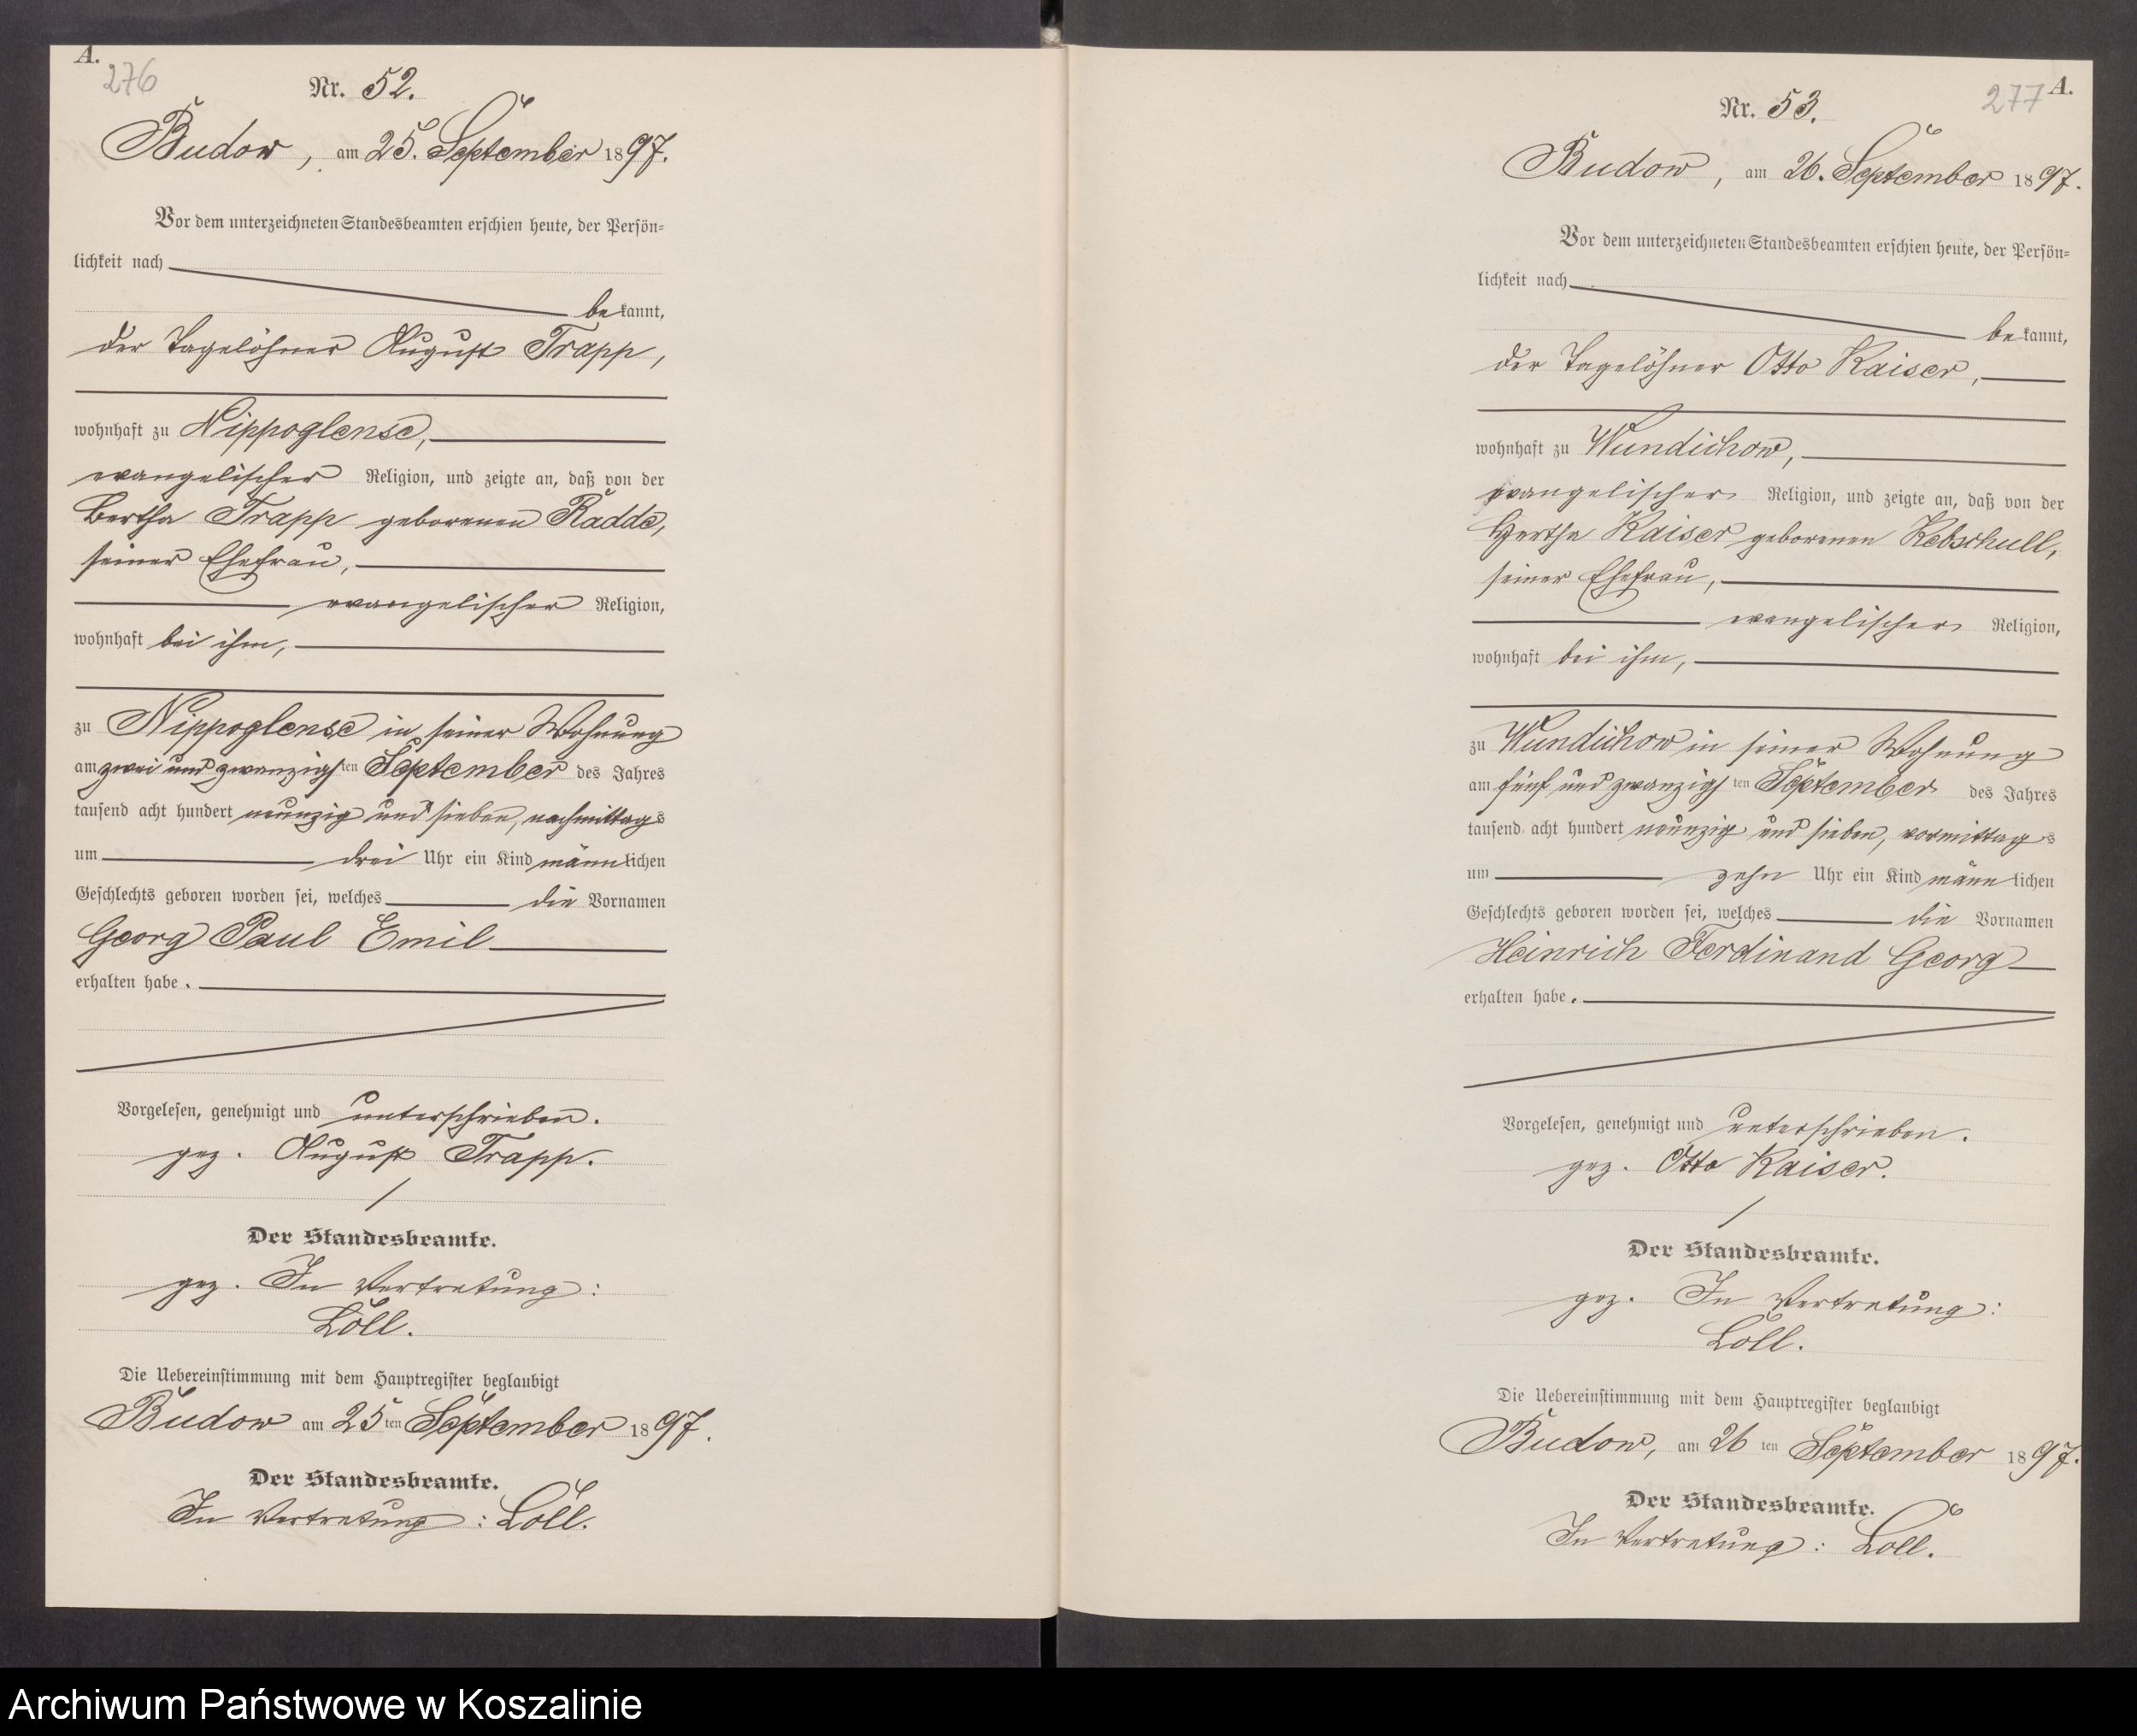 A.
276
Nr. 52.
Budow, am 25. September 1897.
Vor dem unterzeichneten Standesbeamten erschien heute, der Persön-
lichkeit nach
bekannt,
der Tagelöhner August Trapp,
wohnhaft zu Nippoglense,
evangelischer Religion, und zeigte an, daß von der
Bertha Trapp geborenen Radde,
seiner Ehefrau,
evangelischer Religion,
wohnhaft bei ihm,
zu Nippoglense in seiner Wohnung
am zwei und zwanzigsten September des Jahres
tausend acht hundert neunzig und sieben, nachmittags
um drei Uhr ein Kind männlichen
Geschlechts geboren worden sei, welches die Vornamen
Georg Paul Emil
erhalten habe.
Vorgelesen, genehmigt und unterschrieben.
gez. August Trapp.
Der Standesbeamte.
gez. In Vertretung:
Löll.
Die Uebereinstimmung mit dem Hauptregister beglaubigt
Budow am 25ten September 1897.
Der Standesbeamte.
In Vertretung: Löll.
277 A.
Nr. 53.
Budow, am 26. September 1897.
Vor dem unterzeichneten Standesbeamten erschien heute, der Persön-
lichkeit nach
bekannt,
der Tagelöhner Otto Kaiser,
wohnhaft zu Wundichow,
evangelischer Religion, und zeigte an, daß von der
Hertha Kaiser geborenen Kebschull,
seiner Ehefrau,
evangelischer Religion,
wohnhaft bei ihm,
zu Wundichow in seiner Wohnung
am fünf und zwanzigsten September des Jahres
tausend acht hundert neunzig und sieben, vormittags
um zehn Uhr ein Kind männlichen
Geschlechts geboren worden sei, welches die Vornamen
Heinrich Ferdinand Georg
erhalten habe.
Vorgelesen, genehmigt und unterschrieben.
gez. Otto Kaiser.
Der Standesbeamte.
gez. In Vertretung:
Löll.
Die Uebereinstimmung mit dem Hauptregister beglaubigt
Budow, am 26ten September 1897.
Der Standesbeamte.
In Vertretung: Löll.
Archiwum Państwowe w Koszalinie